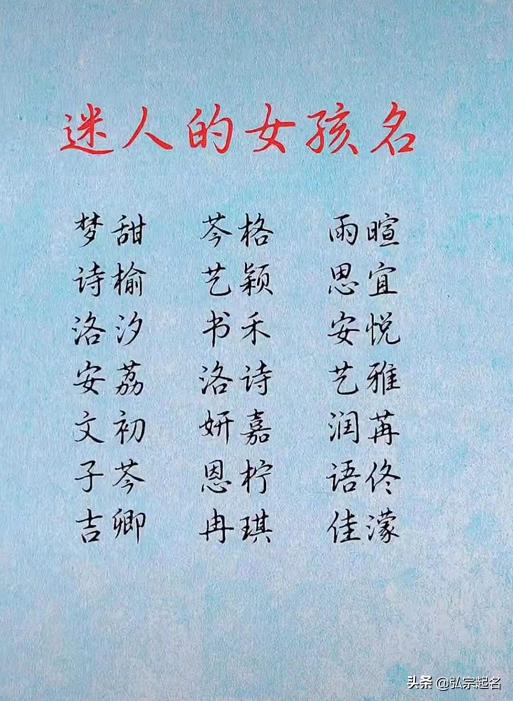 迷人的女孩名
梦甜 芩格 雨暄
诗榆 艺颖 思宜
洛汐 书禾 安悦
安荔 洛诗 艺雅
文初 妍嘉 润苒
子芩 恩柠 语佟
吉卿 冉琪 佳濛
头条 @弘宗起名